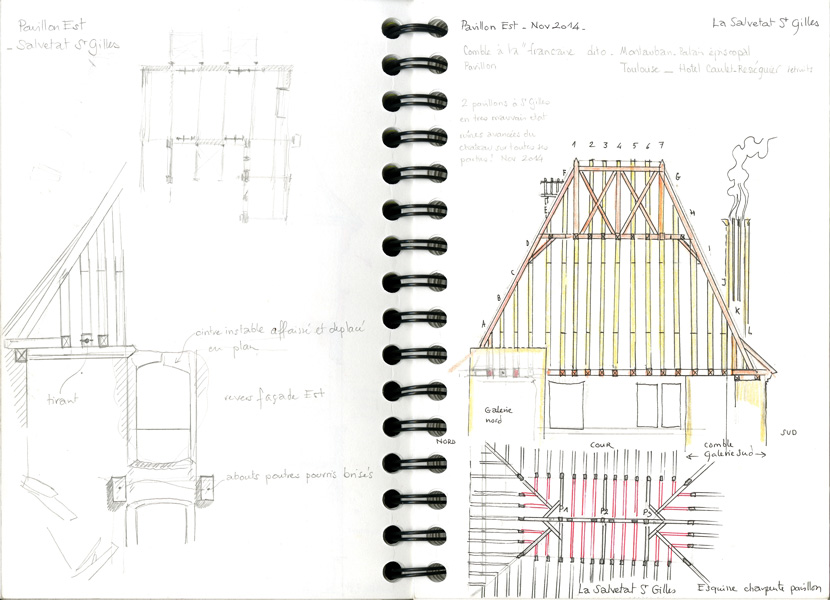 Pavillon Est
- Salvetat St Gilles
cintre instable affaissé et déplacé
en plan
tirant
revers façade Est
abouts poutres pourris brisés
Pavillon Est - Nov 2014 -
La Salvetat St Gilles
Comble à la "française dito - Montauban - Palais épiscopal
Pavillon
Toulouse - Hotel Caulet-Rességuier
2 pavillons à St Gilles
en très mauvais état
château sur toutes les
parties! Nov 2014
1 2 3 4 5 6 7
F G
E H
D I
C J
B K
A L
Galerie
nord
NORD
COUR
comble
Galerie Sud
SUD
P1 P2 P3
La Salvetat St Gilles
Esquisse charpente pavillon